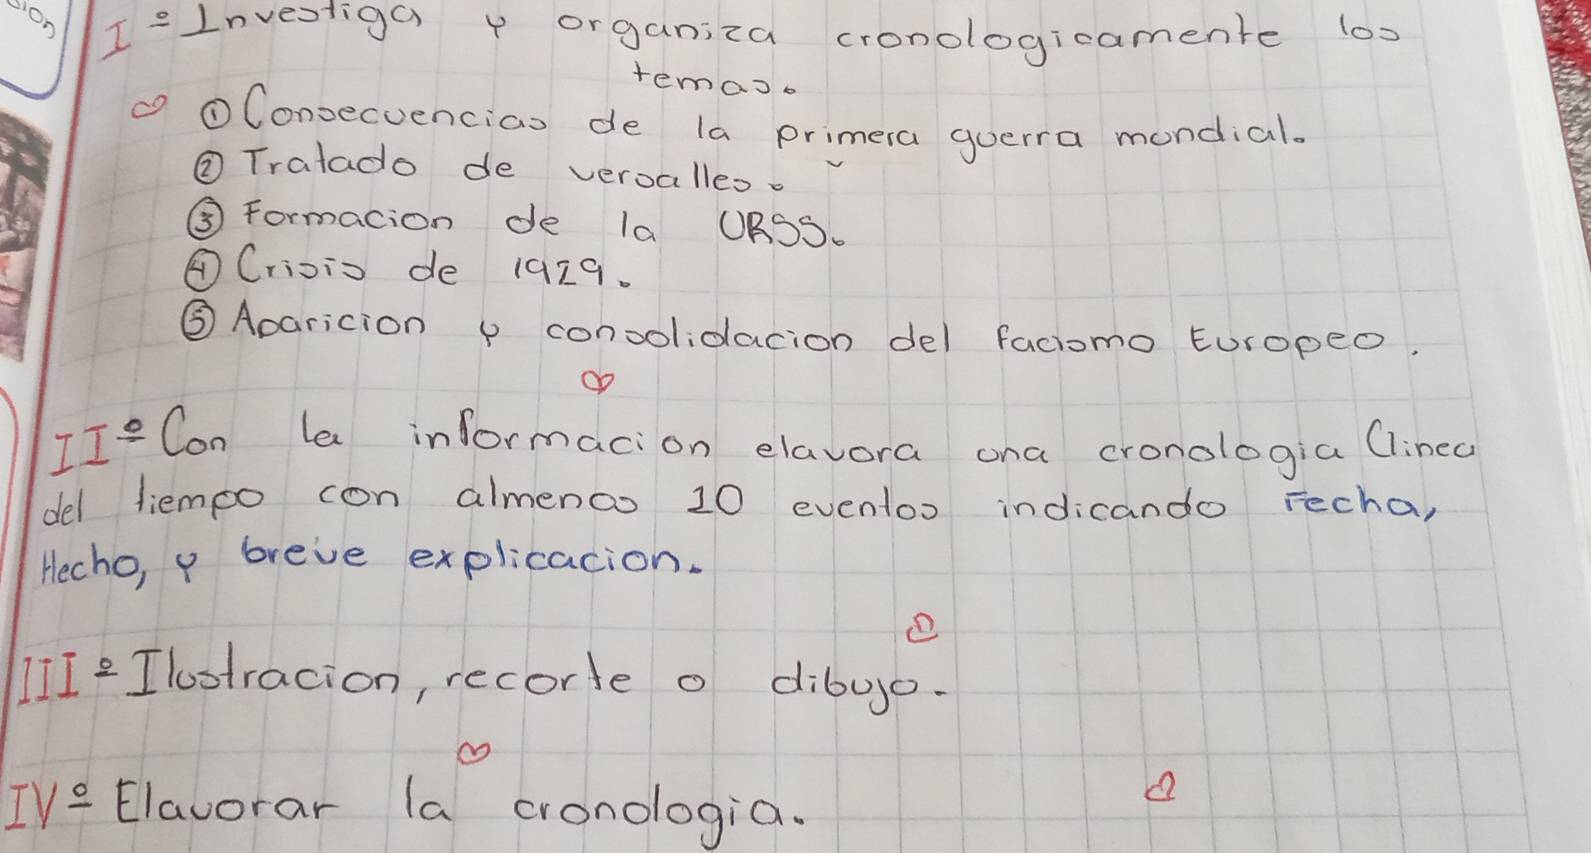 I º Investiga y organiza cronologicamente los
temas.
① Consecuencias de la primera guerra mundial.
② Tratado de versalles.
③ Formacion de la URSS.
④ Crisis de 1929.
⑤ Aparicion y consolidacion del facismo Europeo.
II º Con la informacion elavora una cronologia (linea
del tiempo con almenos 10 eventos indicando Fecha,
Hecho, y breve explicacion.
III º Ilustracion, recorte o dibujo.
IV º Elavorar la cronologia.